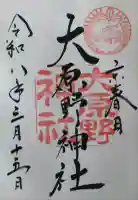 京春日
大原野神社
大原野神社
令和八年三月十五日